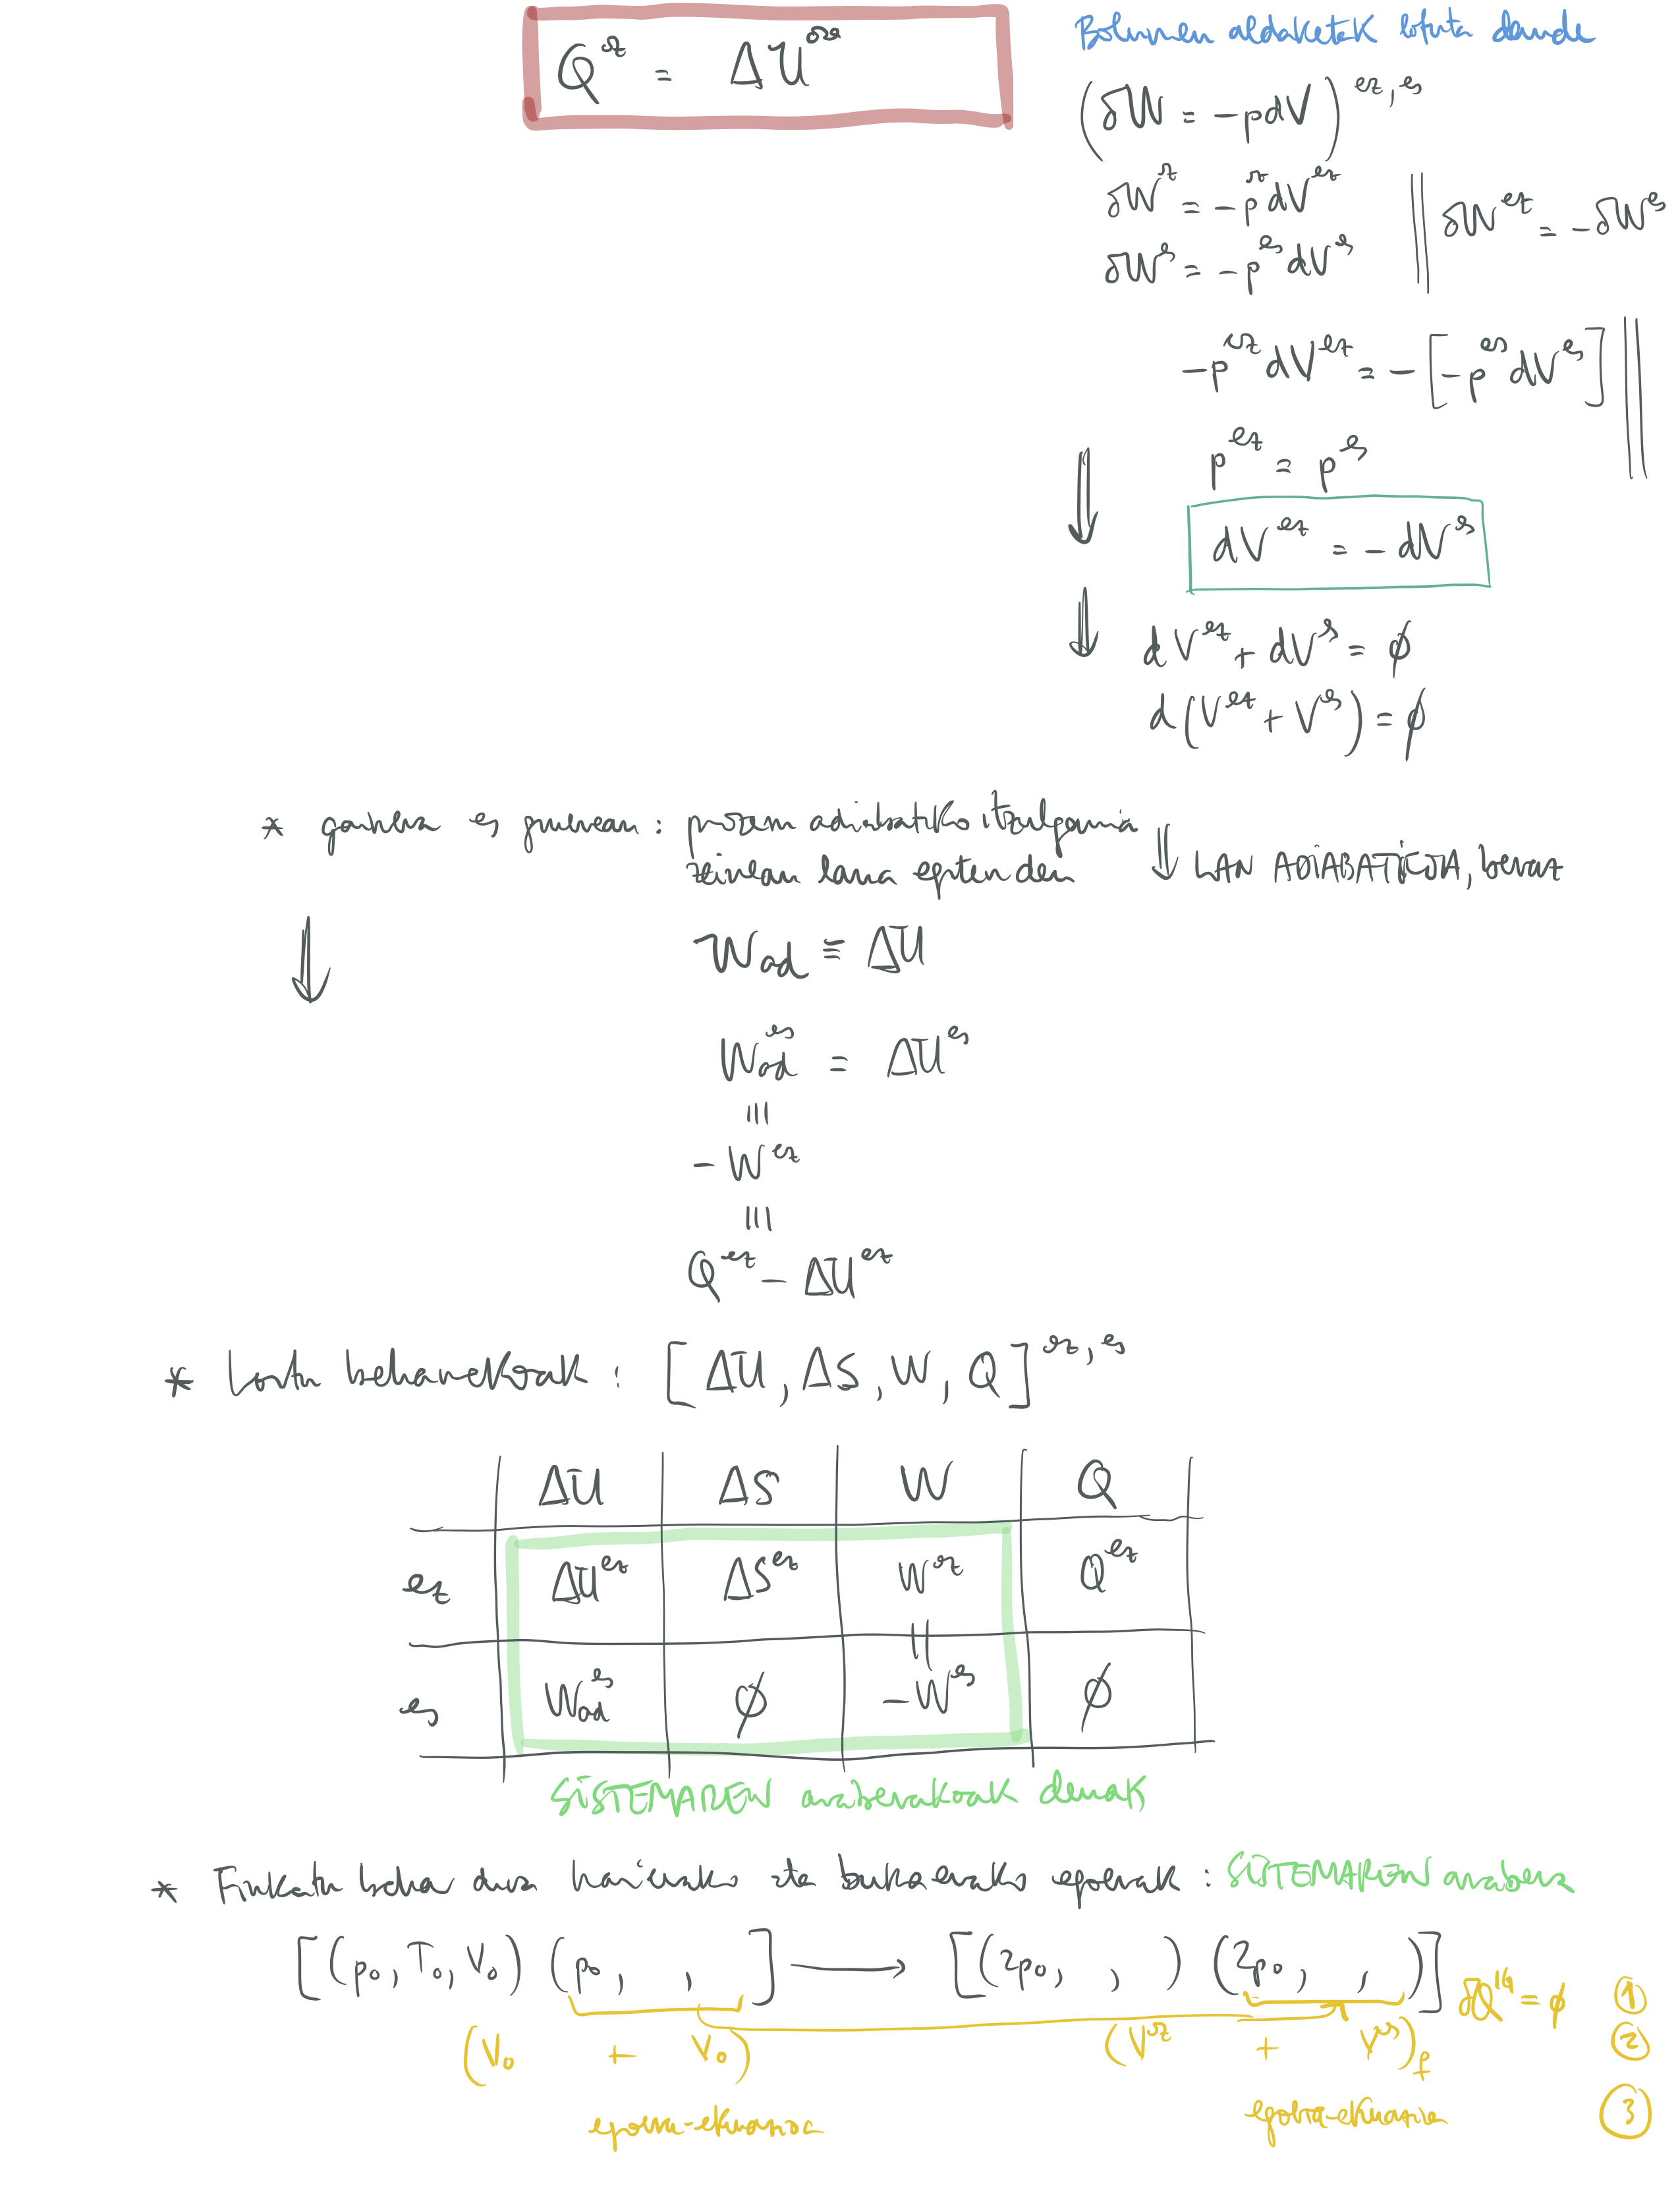 Q^ez = ΔU^ez
Bolumen aldaketak lotuta daude
(δW = -pdV)^ez,es
δW^ez = -p^ez dV^ez
δW^es = -p^es dV^es
δW^ez = -δW^es
-p^ez dV^ez = -[-p^es dV^es]
p^ez = p^es
⇓
dV^ez = -dV^es
⇓
dV^ez + dV^es = ϕ
d(V^ez + V^es) = ϕ
* gainera es gunean : prozesu adiabatiko itzulgarria
lana egiten den
⇓ LAN ADIABATIKOA, beraz
W_ad ≡ ΔU
⇓
W_ad^es = ΔU^es
≡
-W^ez
≡
Q^ez - ΔU^ez
* lortu beharrekoak : [ΔU, ΔS, W, Q]^ez,es
ΔU ΔS W Q
ez ΔU^ez ΔS^ez W^ez Q^ez
=
es W_ad^es ϕ -W^es ϕ
SISTEMAREN araberakoak denak
* Finkatu behar dira hasierako eta bukaerako egoerak : SISTEMAREN arabera
[(p₀, T₀, V₀) (p₀, , ] ⟶ [(2p₀, , ) (2p₀, , )]
δQ^es = ϕ ①
(V₀ + V₀) (V^ez + V^es)_f ②
egoera-ekuazioa egoera-ekuazioa ③